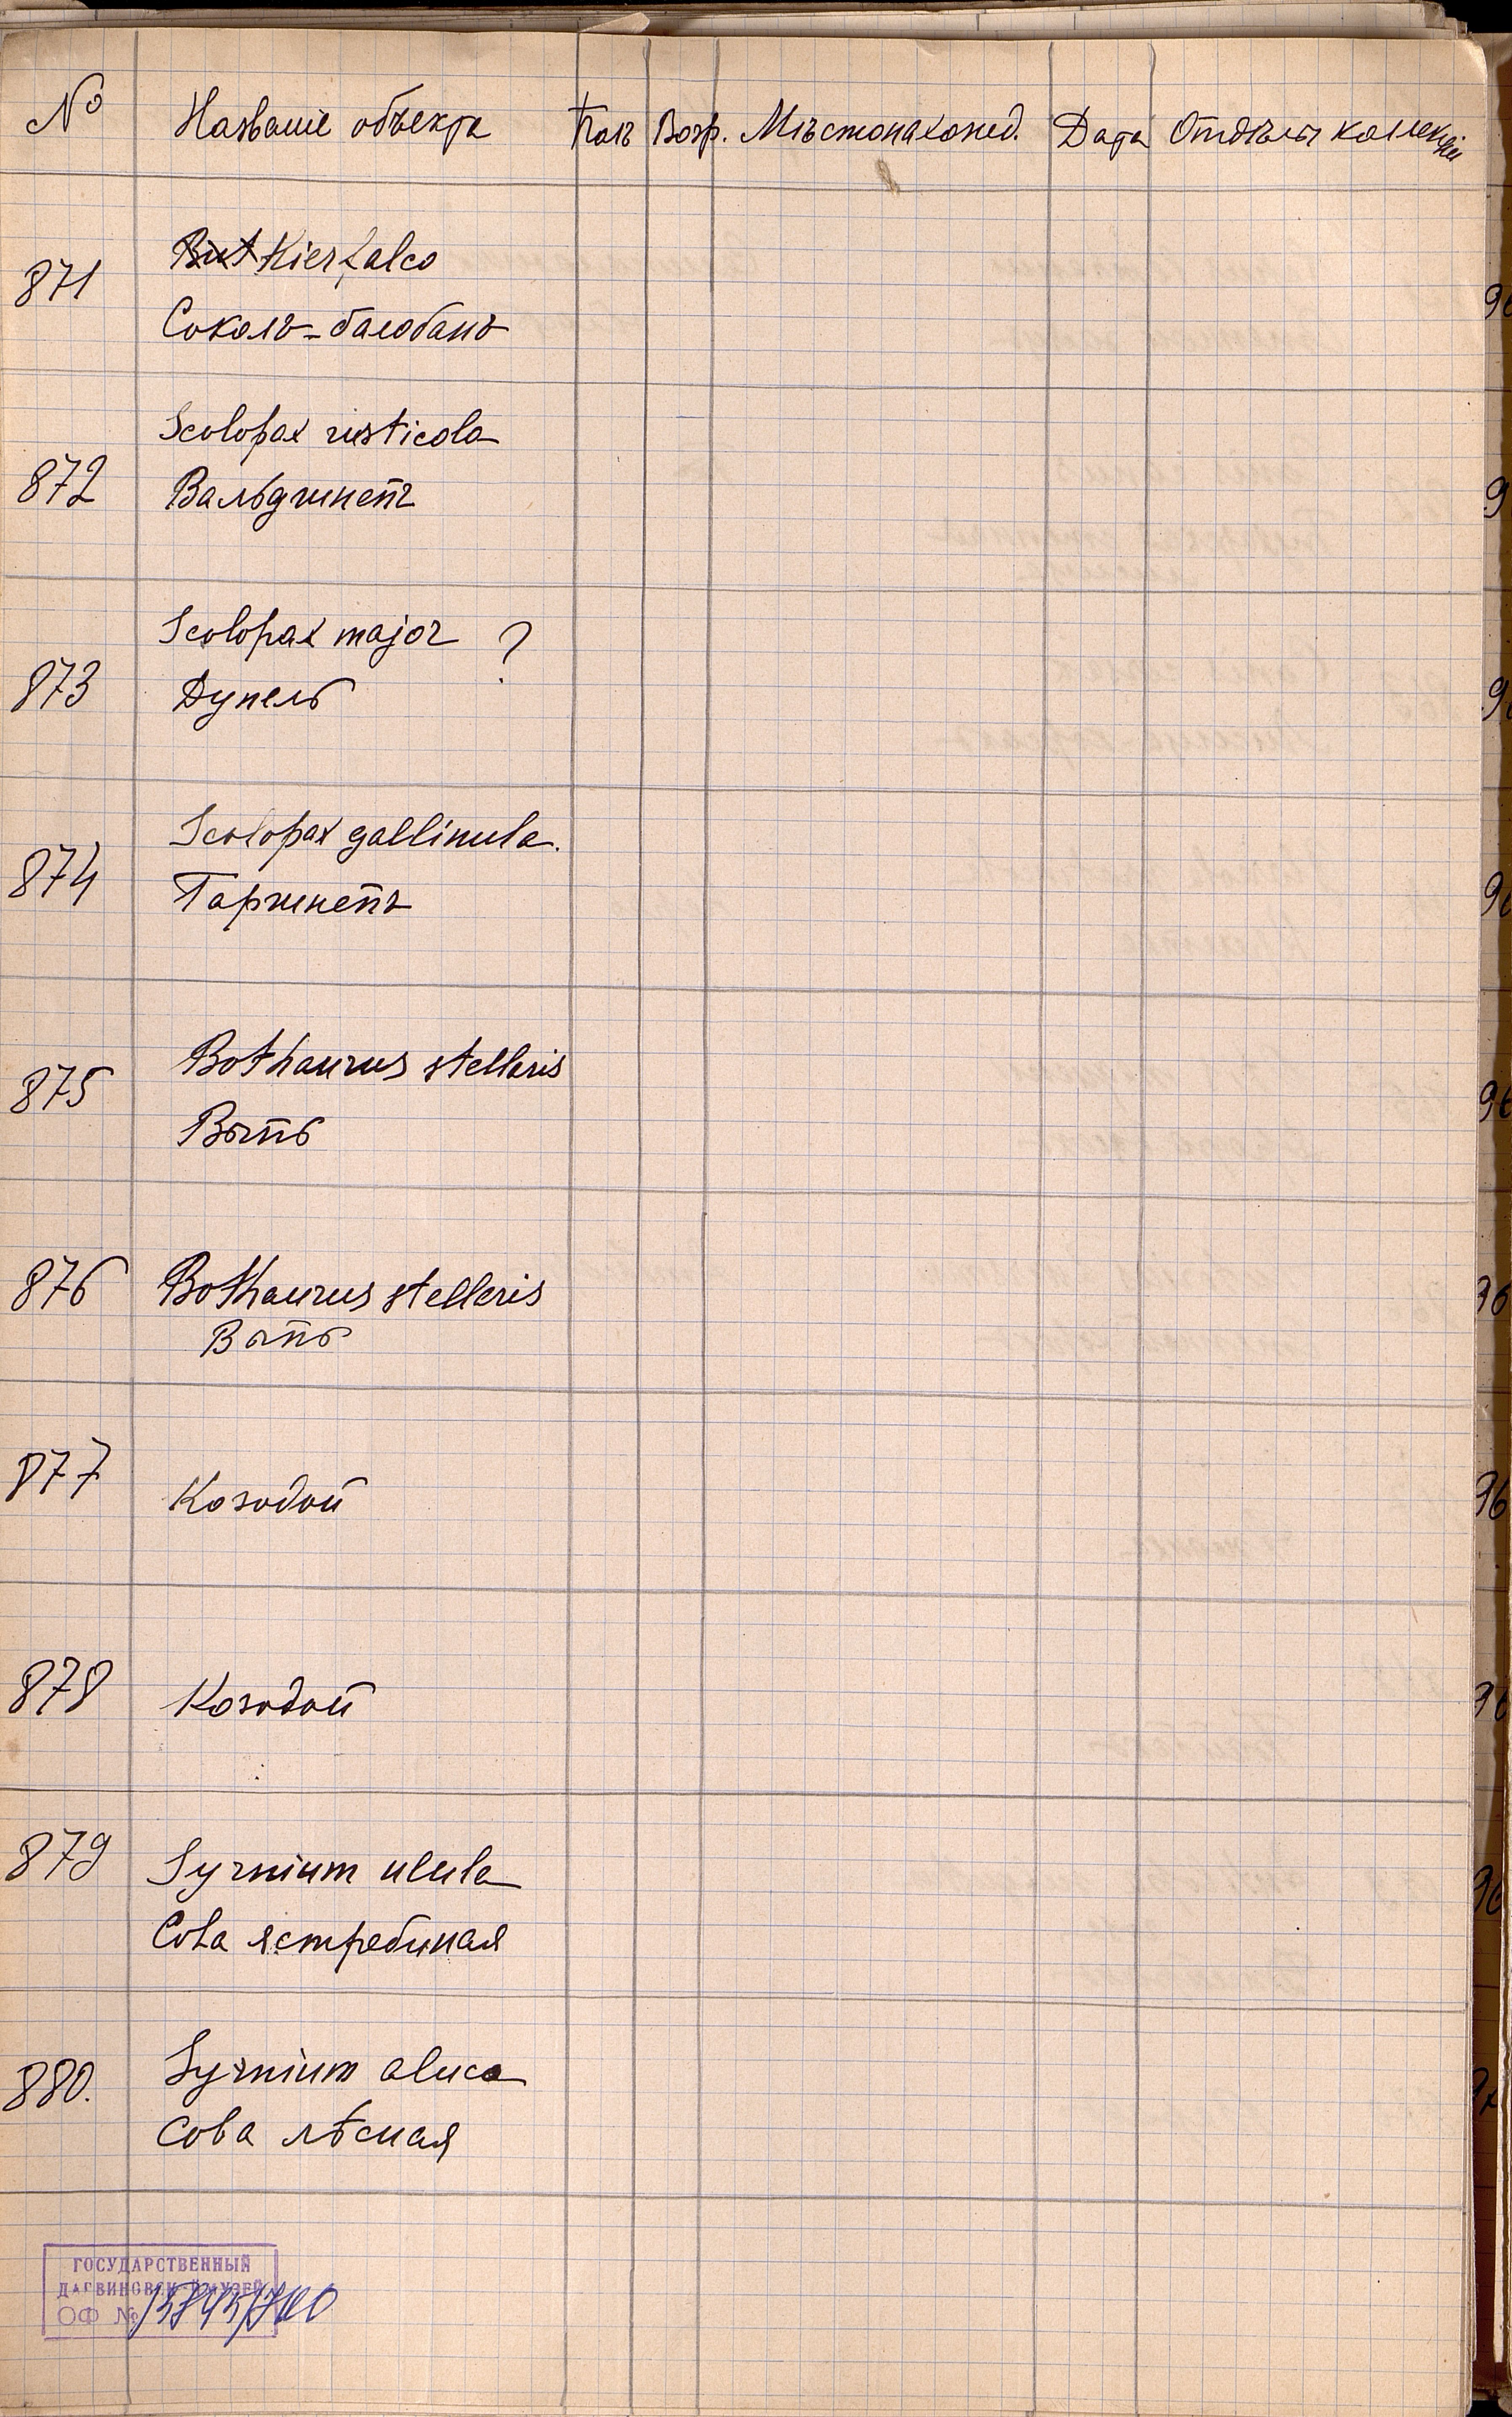 № Названіе объекта Полъ Возр. Мѣстонахожд. Дата Отдѣлъ колекцій
871 Hierfalco
Соколъ-балобанъ
872 Scolopax rusticola
Вальдшнепъ
873 Scolopax major ?
Дупель
874 Scolopax gallinula.
Гаршнепъ
875 Bothaurus stellaris
Выпь
876 Bothaurus stellaris
Выпь
877 Козодой
878 Козодой
879 Syrnium ulula
Сова ястребиная
880. Syrnium aluco
Сова лѣсная
ГОСУДАРСТВЕННЫЙ
ДАРВИНОВСКИЙ МУЗЕЙ
ОФ №